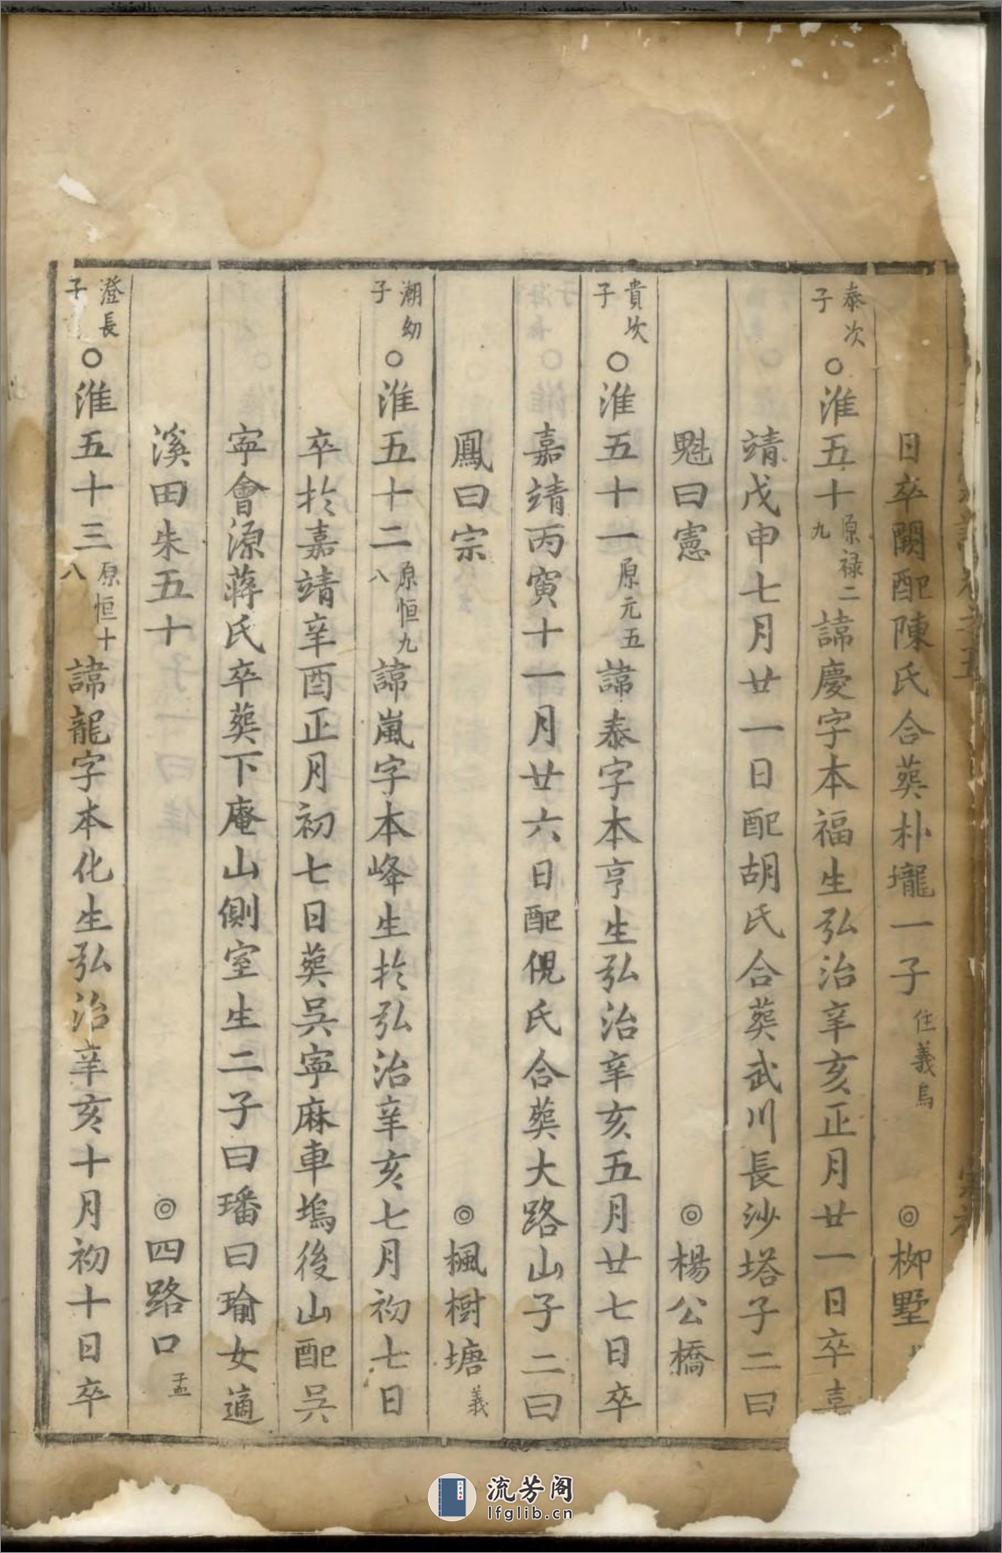 日卒闕配陳氏合葬朴壠一子 住義烏 ◎柳墅
泰次子 ○淮五十 原禄二九 諱慶字本福生弘治辛亥正月廿一日卒嘉
靖戊申七月廿一日配胡氏合葬武川長沙塔子二曰
魁曰憲 ◎楊公橋
貴次子 ○淮五十一 原元五 諱泰字本亨生弘治辛亥五月廿七日卒
嘉靖丙寅十一月廿六日配倪氏合葬大路山子二曰
鳳曰宗 ◎楓樹塘 義
潮幼子 ○淮五十二 原恒九八 諱嵐字本峰生扵弘治辛亥七月初七日
卒扵嘉靖辛酉正月初七日葬吳寧麻車塢後山配吳
寧會源蔣氏卒葬下庵山側室生二子曰璠曰瑜女適
溪田朱五十 ◎四路口 孟
澄長子 ○淮五十三 原恒十八 諱龍字本化生弘治辛亥十月初十日卒
流芳阁
lfglib.cn